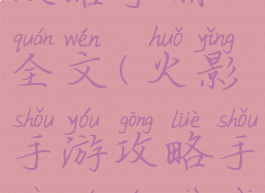 quán wén huǒ yǐng
全文(火影
shǒu yóu gōng lüè shǒu
手游攻略手